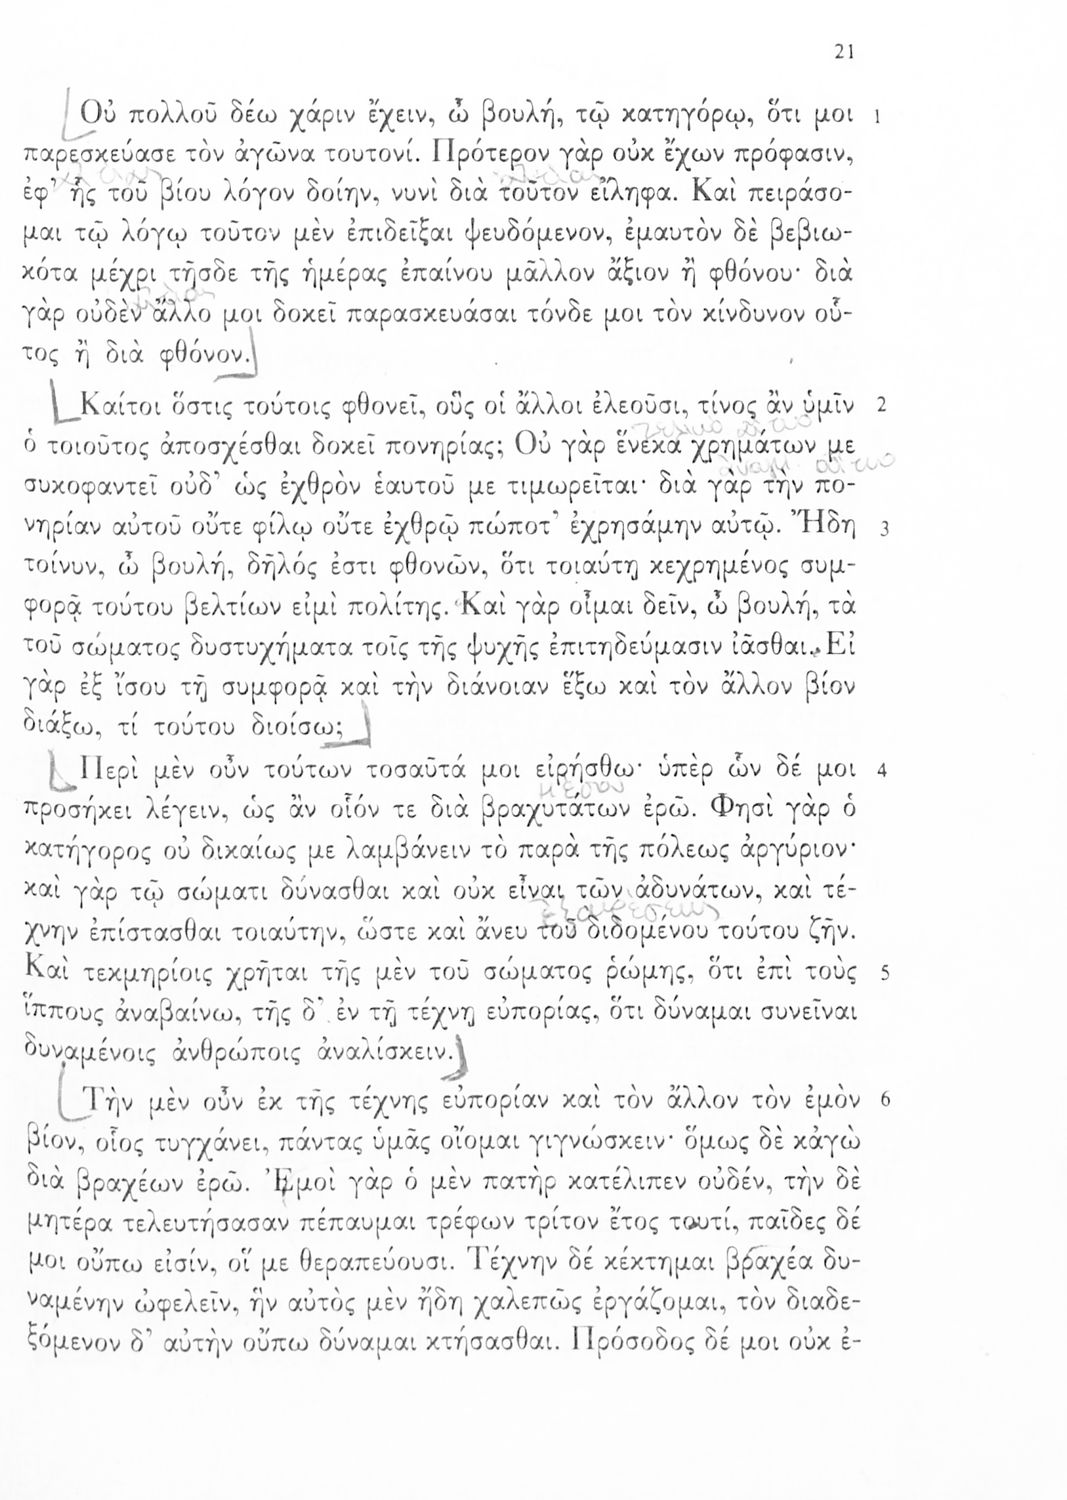 21
Οὐ πολλοῦ δέω χάριν ἔχειν, ὦ βουλή, τῷ κατηγόρῳ, ὅτι μοι 1
παρεσκεύασε τὸν ἀγῶνα τουτονί. Πρότερον γὰρ οὐκ ἔχων πρόφασιν,
ἐφ’ ἧς τοῦ βίου λόγον δοίην, νυνὶ διὰ τοῦτον εἴληφα. Καὶ πειράσο-
μαι τῷ λόγῳ τοῦτον μὲν ἐπιδεῖξαι ψευδόμενον, ἐμαυτὸν δὲ βεβιω-
κότα μέχρι τῆσδε τῆς ἡμέρας ἐπαίνου μᾶλλον ἄξιον ἢ φθόνου· διὰ
γὰρ οὐδὲν ἄλλο μοι δοκεῖ παρασκευάσαι τόνδε μοι τὸν κίνδυνον οὗ-
τος ἢ διὰ φθόνον.
Καίτοι ὅστις τούτοις φθονεῖ, οὓς οἱ ἄλλοι ἐλεοῦσι, τίνος ἂν ὑμῖν 2
τελικό αίτιο
ὁ τοιοῦτος ἀποσχέσθαι δοκεῖ πονηρίας; Οὐ γὰρ ἕνεκα χρημάτων με
αίτιο
συκοφαντεῖ οὐδ’ ὡς ἐχθρὸν ἑαυτοῦ με τιμωρεῖται· διὰ γὰρ τὴν πο-
νηρίαν αὐτοῦ οὔτε φίλῳ οὔτε ἐχθρῷ πώποτ’ ἐχρησάμην αὐτῷ. Ἤδη 3
τοίνυν, ὦ βουλή, δῆλός ἐστι φθονῶν, ὅτι τοιαύτῃ κεχρημένος συμ-
φορᾷ τούτου βελτίων εἰμὶ πολίτης. Καὶ γὰρ οἶμαι δεῖν, ὦ βουλή, τὰ
τοῦ σώματος δυστυχήματα τοῖς τῆς ψυχῆς ἐπιτηδεύμασιν ἰᾶσθαι. Εἰ
γὰρ ἐξ ἴσου τῇ συμφορᾷ καὶ τὴν διάνοιαν ἕξω καὶ τὸν ἄλλον βίον
διάξω, τί τούτου διοίσω;
Περὶ μὲν οὖν τούτων τοσαῦτά μοι εἰρήσθω· ὑπὲρ ὧν δέ μοι 4
μέσον
προσήκει λέγειν, ὡς ἂν οἷόν τε διὰ βραχυτάτων ἐρῶ. Φησὶ γὰρ ὁ
κατήγορος οὐ δικαίως με λαμβάνειν τὸ παρὰ τῆς πόλεως ἀργύριον·
καὶ γὰρ τῷ σώματι δύνασθαι καὶ οὐκ εἶναι τῶν ἀδυνάτων, καὶ τέ-
εξαιρέσεως
χνην ἐπίστασθαι τοιαύτην, ὥστε καὶ ἄνευ τοῦ διδομένου τούτου ζῆν.
Καὶ τεκμηρίοις χρῆται τῆς μὲν τοῦ σώματος ῥώμης, ὅτι ἐπὶ τοὺς 5
ἵππους ἀναβαίνω, τῆς δ’ ἐν τῇ τέχνῃ εὐπορίας, ὅτι δύναμαι συνεῖναι
δυναμένοις ἀνθρώποις ἀναλίσκειν.
Τὴν μὲν οὖν ἐκ τῆς τέχνης εὐπορίαν καὶ τὸν ἄλλον τὸν ἐμὸν 6
βίον, οἷος τυγχάνει, πάντας ὑμᾶς οἴομαι γιγνώσκειν· ὅμως δὲ κἀγὼ
διὰ βραχέων ἐρῶ. Ἐμοὶ γὰρ ὁ μὲν πατὴρ κατέλιπεν οὐδέν, τὴν δὲ
μητέρα τελευτήσασαν πέπαυμαι τρέφων τρίτον ἔτος τουτί, παῖδες δέ
μοι οὔπω εἰσίν, οἵ με θεραπεύουσι. Τέχνην δὲ κέκτημαι βραχέα δυ-
ναμένην ὠφελεῖν, ἣν αὐτὸς μὲν ἤδη χαλεπῶς ἐργάζομαι, τὸν διαδε-
ξόμενον δ’ αὐτὴν οὔπω δύναμαι κτήσασθαι. Πρόσοδος δέ μοι οὐκ ἔ-